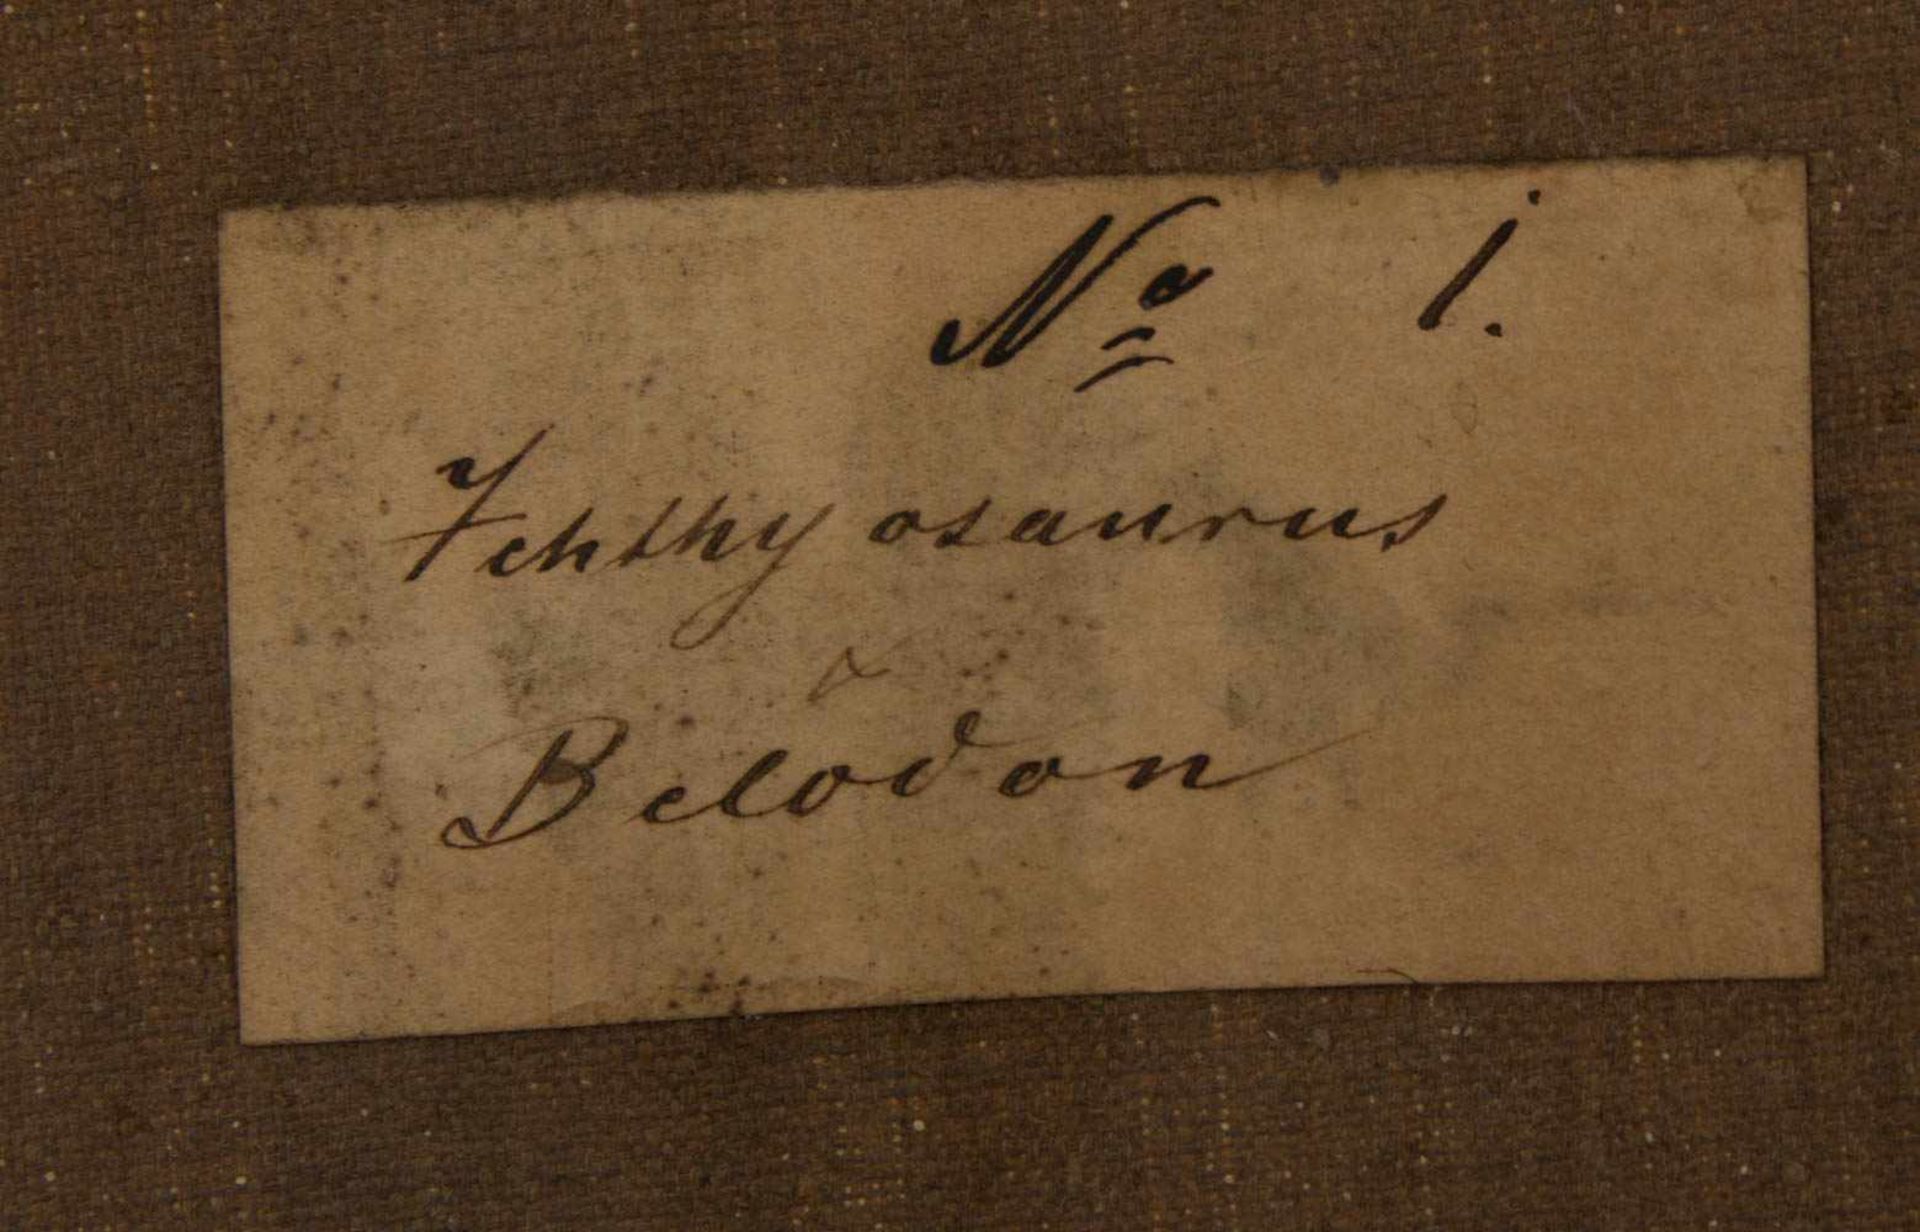 No 1.
Ichthyosaurus
&
Belodon